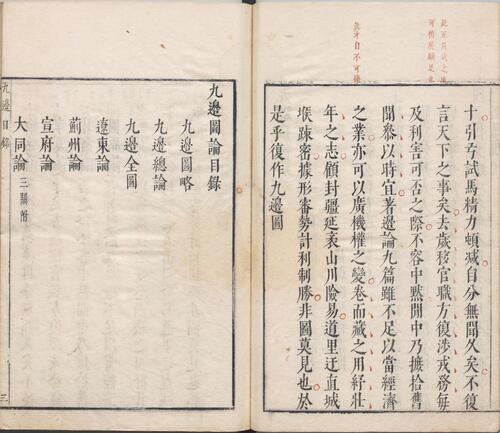 此五同武之
可稍展顧足
其才自不可
十引弓試馬精力頓减自分無聞久矣不復
言天下之事矣去歲移官職方復涉戎務每
及利害可否之際不容中黙閒中乃摭拾舊
聞叅以時宜著邊論九篇雖不足以當經濟
之業亦可以廣機權之變卷而藏之用紓壯
年之志顧封疆延袤山川險易道里迂直城
堠踈宻據形審勢計利制勝非圖莫見也於
是乎復作九邊圖
九邊圖論目錄
九邊圖略
九邊總論
九邊全圖
遼東論
薊州論
宣府論
大同論 三關附
九邊目錄
三